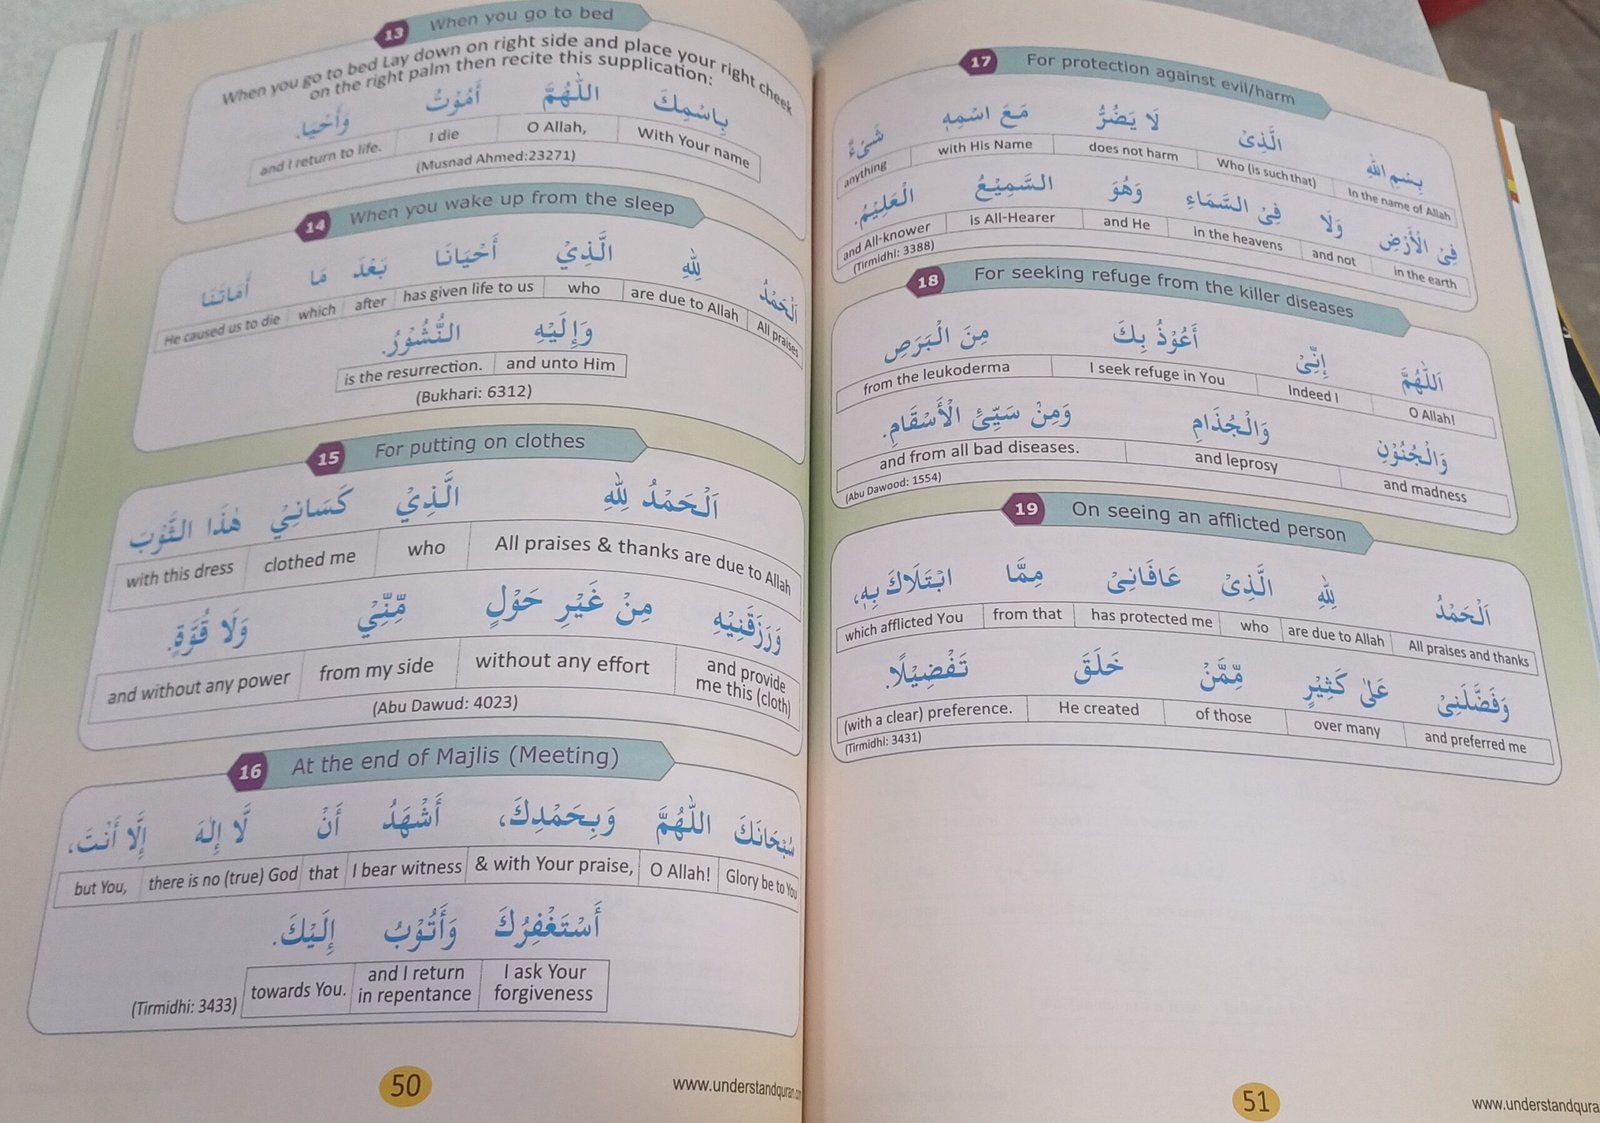 13 When you go to bed
When you go to bed Lay down on right side and place your right cheek
on the right palm then recite this supplication:
بِاسْمِكَ اللّٰهُمَّ أَمُوْتُ وَأَحْيَا.
With Your name O Allah, I die and I return to life.
(Musnad Ahmed:23271)
14 When you wake up from the sleep
اَلْحَمْدُ لِلّٰهِ الَّذِيْ أَحْيَانَا بَعْدَ مَا أَمَاتَنَا
All praises are due to Allah who has given life to us after which He caused us to die
وَإِلَيْهِ النُّشُوْرُ.
and unto Him is the resurrection.
(Bukhari: 6312)
15 For putting on clothes
اَلْحَمْدُ لِلّٰهِ الَّذِيْ كَسَانِيْ هٰذَا الثَّوْبَ
All praises & thanks are due to Allah who clothed me with this dress
وَرَزَقَنِيْهِ مِنْ غَيْرِ حَوْلٍ مِّنِّيْ وَلَا قُوَّةٍ.
and provide me this (cloth) without any effort from my side and without any power
(Abu Dawud: 4023)
16 At the end of Majlis (Meeting)
سُبْحَانَكَ اللّٰهُمَّ وَبِحَمْدِكَ، أَشْهَدُ أَنْ لَّا إِلٰهَ إِلَّا أَنْتَ،
Glory be to You O Allah! & with Your praise, I bear witness that there is no (true) God but You,
أَسْتَغْفِرُكَ وَأَتُوْبُ إِلَيْكَ.
I ask Your forgiveness and I return in repentance towards You.
(Tirmidhi: 3433)
50
www.understandquran.co
17 For protection against evil/harm
بِسْمِ اللّٰهِ الَّذِىْ لَا يَضُرُّ مَعَ اسْمِهٖ شَىْءٌ
In the name of Allah Who (is such that) does not harm with His Name anything
فِى الْأَرْضِ وَلَا فِى السَّمَاءِ وَهُوَ السَّمِيْعُ الْعَلِيْمُ.
in the earth and not in the heavens and He is All-Hearer and All-knower
(Tirmidhi: 3388)
18 For seeking refuge from the killer diseases
اَللّٰهُمَّ إِنِّىْ أَعُوْذُ بِكَ مِنَ الْبَرَصِ
O Allah! Indeed I I seek refuge in You from the leukoderma
وَالْجُنُوْنِ وَالْجُذَامِ وَمِنْ سَيِّئِ الْأَسْقَامِ.
and madness and leprosy and from all bad diseases.
(Abu Dawood: 1554)
19 On seeing an afflicted person
اَلْحَمْدُ لِلّٰهِ الَّذِىْ عَافَانِىْ مِمَّا ابْتَلَاكَ بِهٖ،
All praises and thanks are due to Allah who has protected me from that which afflicted You
وَفَضَّلَنِىْ عَلٰى كَثِيْرٍ مِّمَّنْ خَلَقَ تَفْضِيْلًا.
and preferred me over many of those He created (with a clear) preference.
(Tirmidhi: 3431)
51
www.understandqura